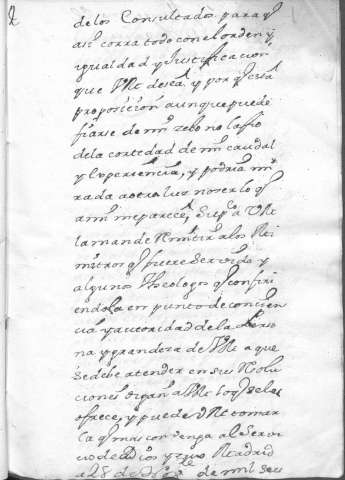 2
de los Consultados para q
assi corra todo con el orden y
igualdad y Justificacion
que VMd desea, y por q esta
proposicion aunque puede
fiarse de mi zelo no la fio
de la cortedad de mi caudal
y experiencia, y podria mi
rada a otra luz no ser lo q
a mi me parece, Supco a VMd
la mande Remitir a los Mi
nistros q fuere Servido y
algunos Theologos q confiri
endola en punto de concien
cia y autoridad de la Perso
na y grandeza de VMd a que
se debe atender en sus Resolu
ciones digan a VMd lo q se les
ofrece, y puede VMd tomar
la q mas convenga al Servi
cio de Dios y suyo Madrid
a 28 de de mil seis